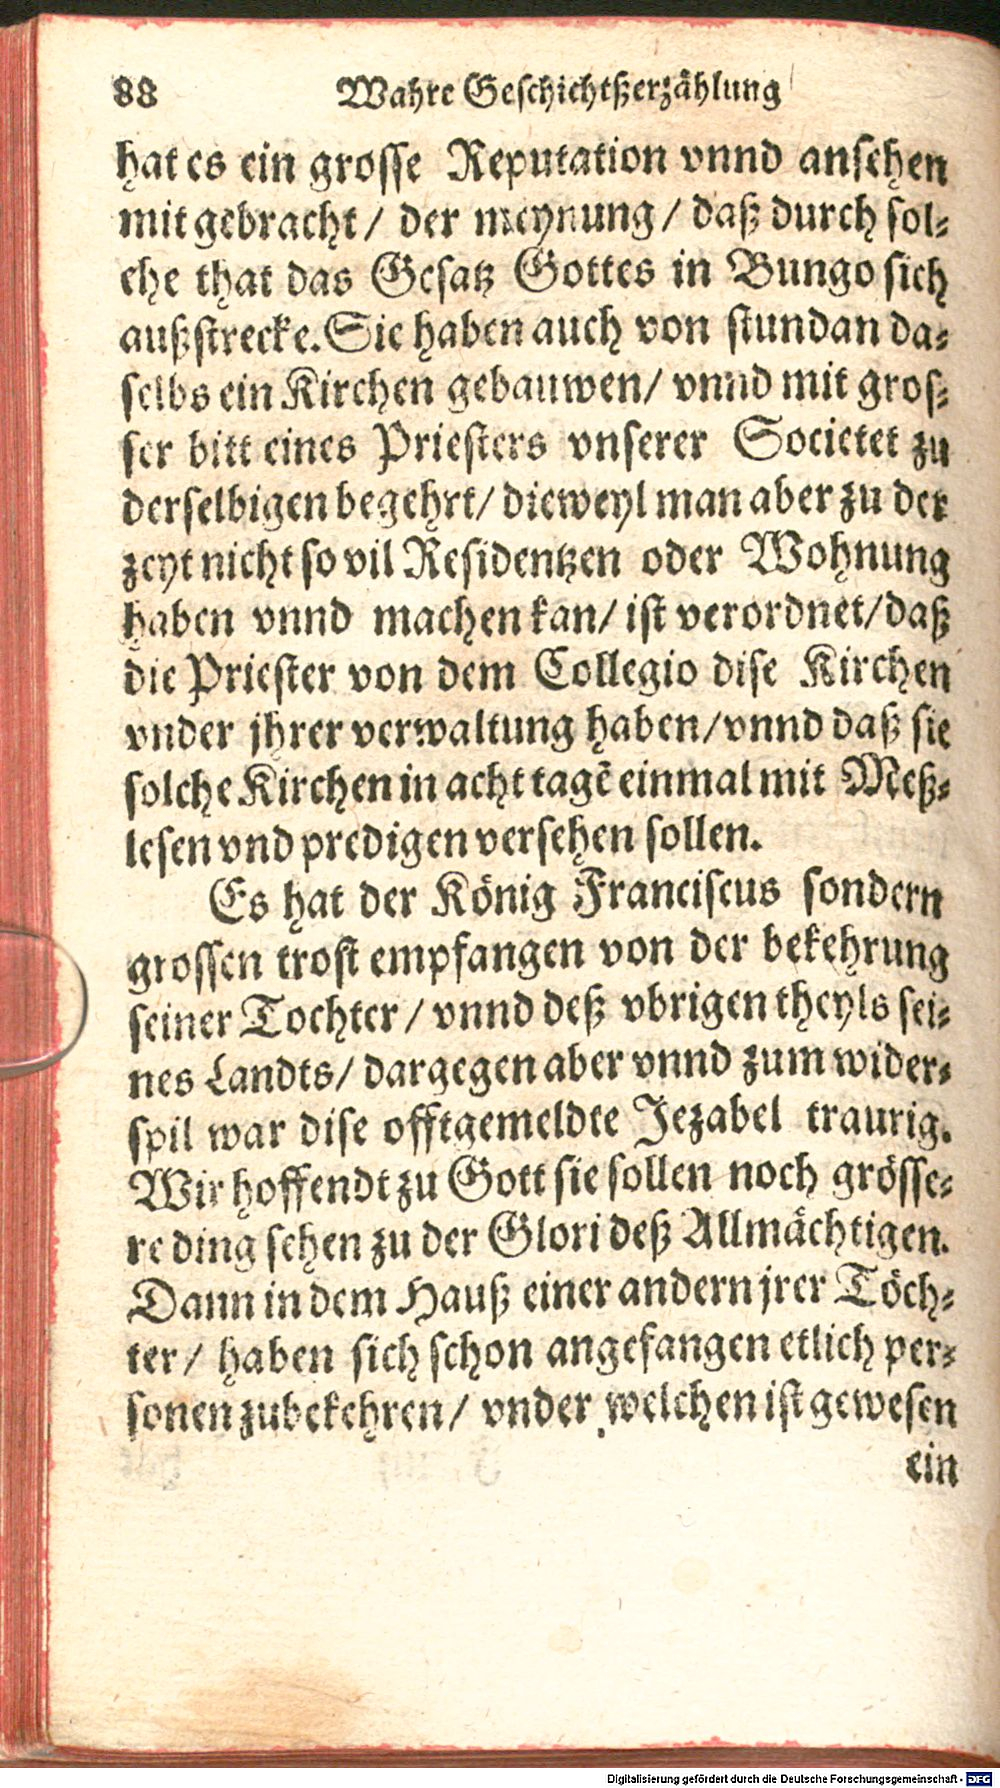 88 Wahre Geschichtßerzählung
hat es ein grosse Reputation vnnd ansehen
mit gebracht / der meynung / daß durch sol-
che that das Gesatz Gottes in Bungo sich
außstrecke. Sie haben auch von stundan da-
selbs ein Kirchen gebauwen / vnnd mit gros-
ser bitt eines Priesters vnserer Societet zu
derselbigen begehrt / dieweyl man aber zu der
zeyt nicht so vil Residentzen oder Wohnung
haben vnnd machen kan / ist verordnet / daß
die Priester von dem Collegio dise Kirchen
vnder jhrer verwaltung haben / vnnd daß sie
solche Kirchen in acht tagẽ einmal mit Meß-
lesen vnd predigen versehen sollen.
Es hat der König Franciscus sondern
grossen trost empfangen von der bekehrung
seiner Tochter / vnnd deß vbrigen theyls sei-
nes Landts / dargegen aber vnnd zum wider-
spil war dise offtgemeldte Jezabel traurig.
Wir hoffendt zu Gott sie sollen noch grösse-
re ding sehen zu der Glori deß Allmächtigen.
Dann in dem Hauß einer andern jrer Töch-
ter / haben sich schon angefangen etlich per-
sonen zubekehren / vnder welchen ist gewesen
ein
Digitalisierung gefördert durch die Deutsche Forschungsgemeinschaft - DFG